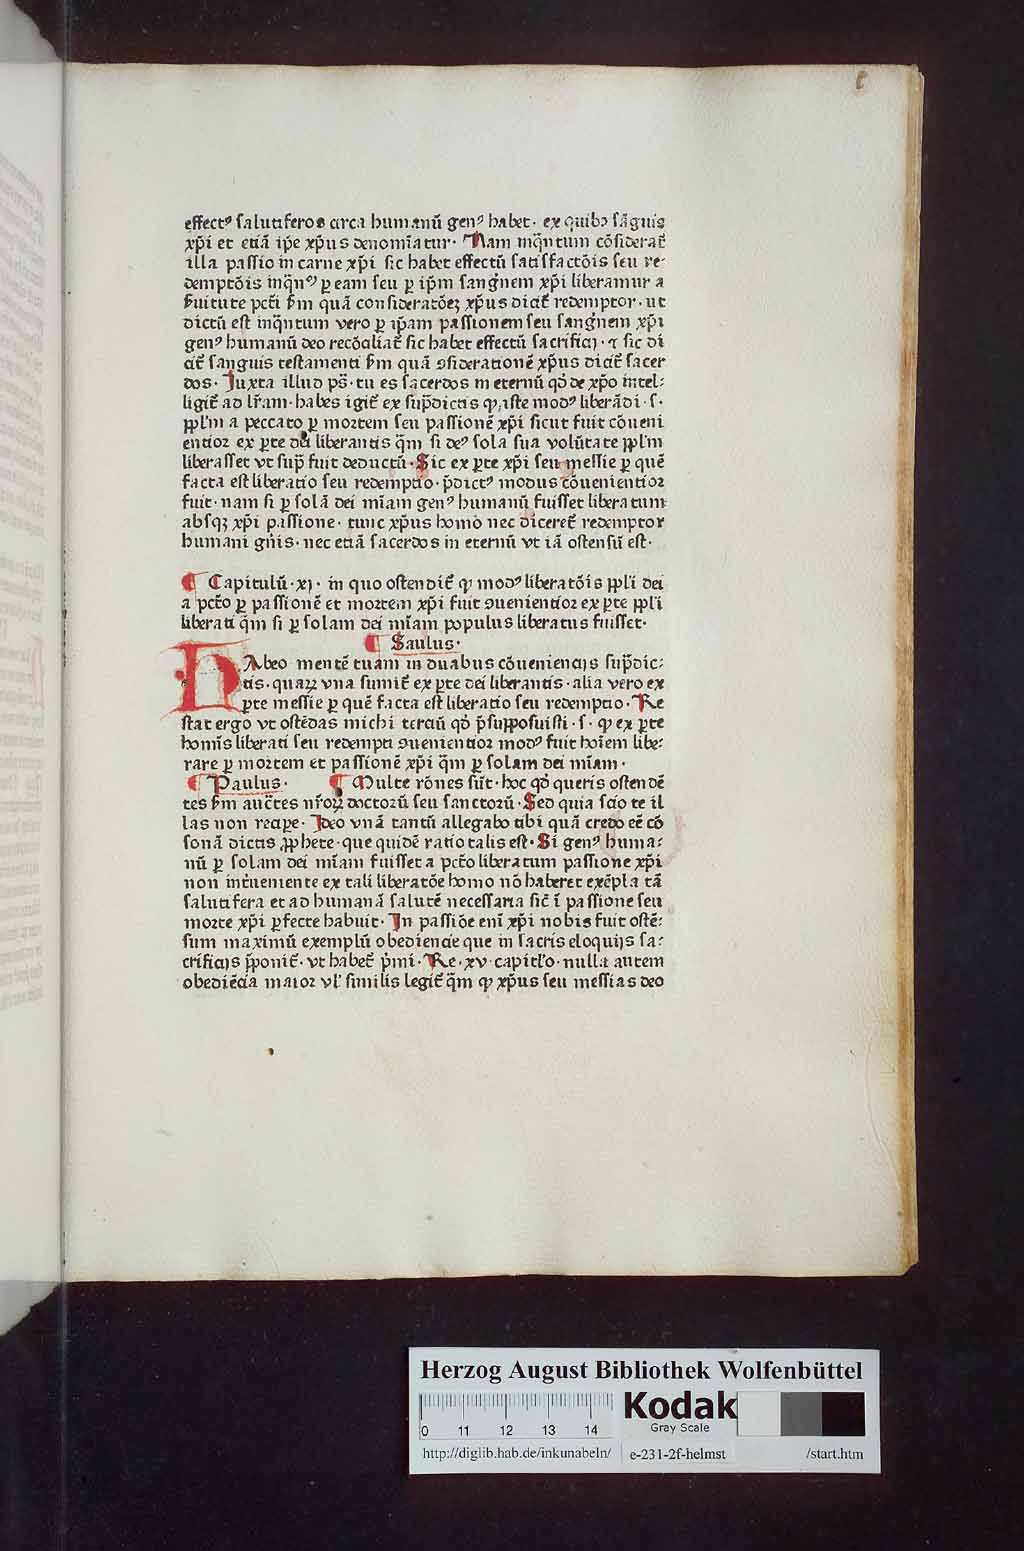 c
effectꝰ salutiferos circa humanū genꝰ habet· ex quibꝰ sāguis
xp̄i et etiā ip̄e xp̄us denomīatur· Nam inq̄ntum cōsiderat̄
illa passio in carne xp̄i sic habet effectū satisfactōis seu re⸗
demptōis inq̄nꝰ ꝑ eam seu ꝑ ip̄m sangīnem xp̄i liberamur a
ẜuitute pctī ẜm quā consideratōeꝫ xp̄us dicit̄ redemptor· ut
dictū est inq̄ntum vero ꝑ ip̄am passionem seu sangīnem xp̄i
genꝰ humanū deo recōciliat̄ sic habet effectū sacrificij· ⁊ sic di
cit̄ sanguis testamenti ẜm quā ꝯsiderationē xp̄us dicit̄ sacer
dos· Juxta illud ps̄· tu es sacerdos in eternū qd̄ de xp̄o intel⸗
ligit̄ ad lr̄am· habes igit̄ ex sup̄dictis ꝙ iste modꝰ liberādi· s·
ppl̄m a peccato ꝑ mortem seu passionē xp̄i sicut fuit cōueni
entior ex ꝑte dei liberantis q̄m si deꝰ sola sua volūtate ppl̄m
liberasset vt sup̄ fuit deductū· Sic ex ꝑte xp̄i seu messie ꝑ quē
facta est liberatio seu redemptio· p̄dictꝰ modus cōuenientior
fuit· nam si ꝑ solā dei mīam genꝰ humanū fuisset liberatum
absqꝫ xp̄i passione· tunc xp̄us homo nec diceret̄ redemptor
humani gn̄is· nec etiā sacerdos in eternū vt iā ostensū est·
¶ Capitulū·xj· in quo ostendit̄ ꝙ modꝰ liberatōis ppl̄i dei
a pctō ꝑ passionē et mortem xp̄i fuit ꝯuenientior ex ꝑte ppl̄i
liberati q̄m si ꝑ solam dei mīam populus liberatus fuisset·
¶ Saulus·
HAbeo mentē tuam in duabus cōueniencijs sup̄dic⸗
tis· quaꝝ vna sumit̄ ex ꝑte dei liberantis· alia vero ex
ꝑte messie ꝑ quē facta est liberatio seu redemptio· Re
stat ergo vt ostēdas michi terciū qd̄ p̄supposuisti· s· ꝙ ex ꝑte
homīs liberati seu redempti ꝯuenientior modꝰ fuit hoīem libe⸗
rare ꝑ mortem et passionē xp̄i q̄m ꝑ solam dei mīam·
¶ Paulus· ¶ Multe rōnes sūt· hoc qd̄ queris ostendē
tes ẜm auctes nr̄oꝝ doctorū seu sanctorū· Sed quia scio te il
las non recipe· Ideo vnā tantū allegabo tibi quā credo eē cō
sonā dictis ꝓphete· que quidē ratio talis est· Si genꝰ huma⸗
nū ꝑ solam dei mīam fuisset a pctō liberatum passione xp̄i
non int̄ueniente ex tali liberatōe homo nō haberet exēpla tā
salutifera et ad humanā salutē necessaria sic̄ ī passione seu
morte xp̄i ꝑfecte habuit· In passiōe enī xp̄i nobis fuit ostē⸗
sum maximū exemplū obediencie que in sacris eloquijs sa⸗
crificijs p̄ponit̄· vt habet̄ p̄mi· Re·xv·capitl̄o· nulla autem
obediēcia maior vl̄ similis legit̄ q̄m ꝙ xp̄us seu messias deo
Herzog August Bibliothek Wolfenbüttel
0 11 12 13 14
Kodak
Gray Scale
http://diglib.hab.de/inkunabeln/ e-231-2f-helmst /start.htm